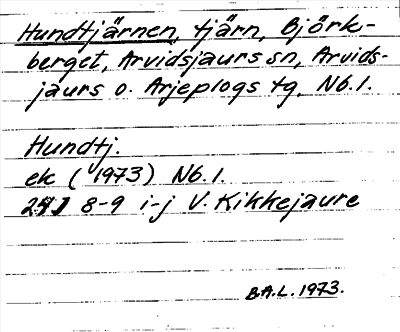 Hundtjärnen, tjärn, Björk-
berget, Arvidsjaurs sn, Arvids-
jaurs o. Arjeplogs tg, Nb.1.
Hundtj.
ek (1973) Nb.1.
8-9 i-j V. Kikkejaure
B.A.L. 1973.